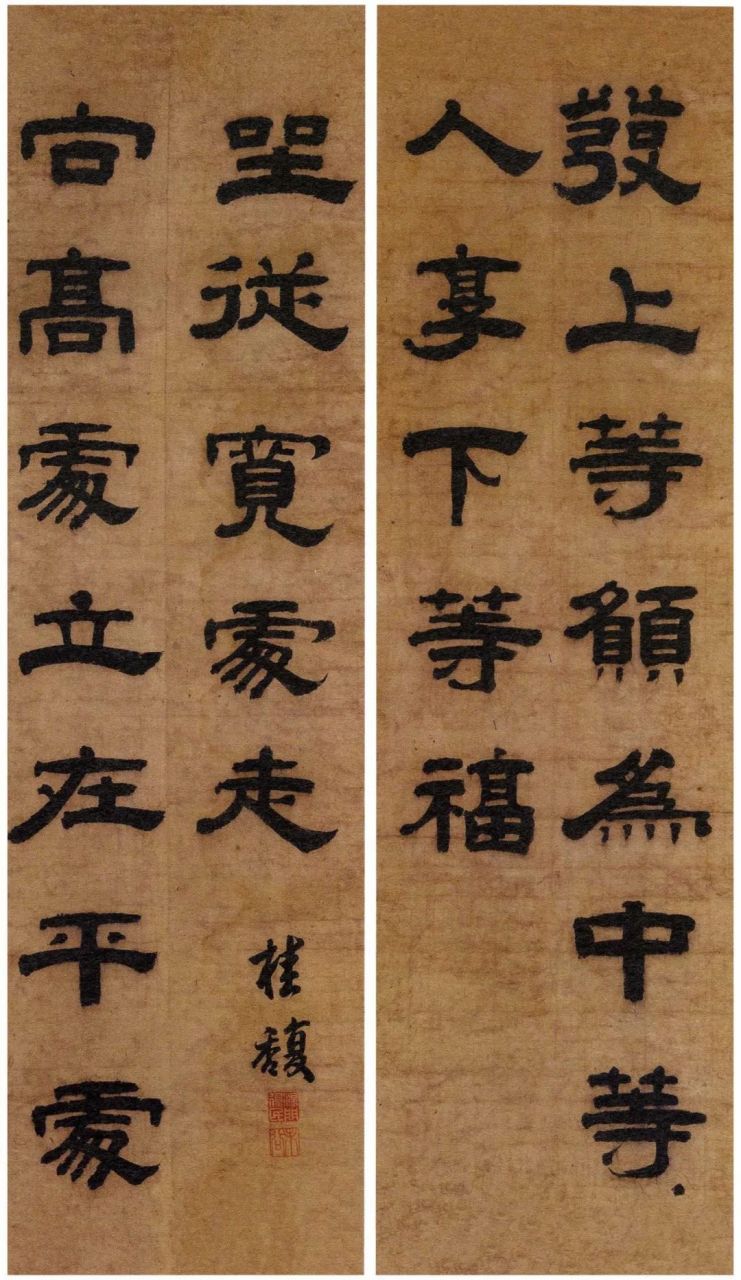 發上等願爲中等
人享下等福
向高處立在平處
坐從寬處走
桂馥